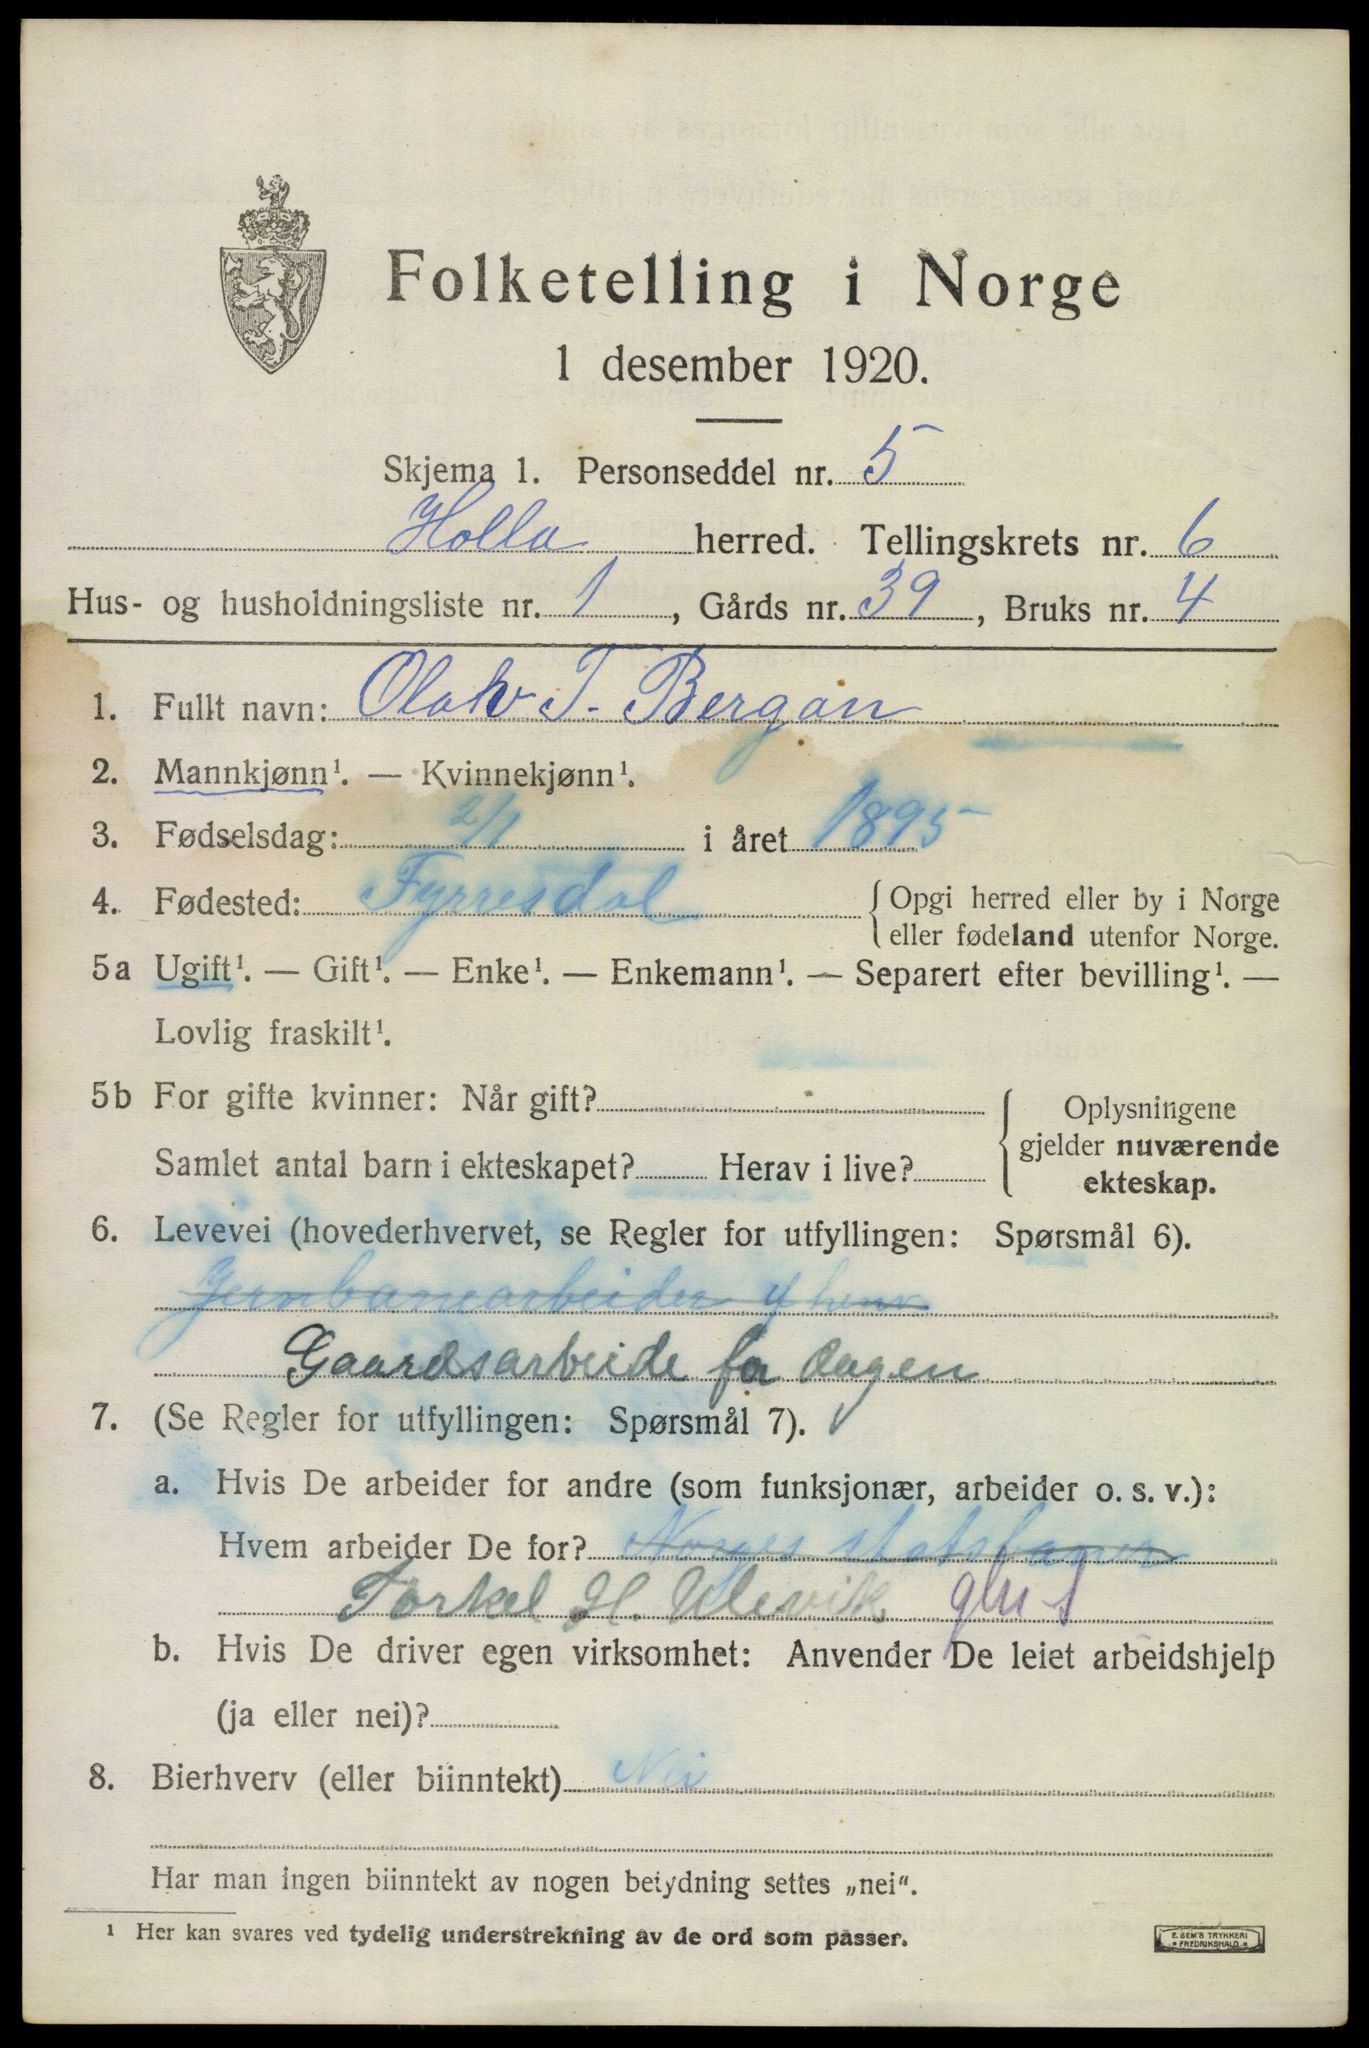 Folketelling i Norge
1 desember 1920.
Skjema 1. Personseddel nr. 5
Holla herred. Tellingskrets nr. 6
Hus- og husholdningsliste nr. 1, Gårds nr. 39, Bruks nr. 4
1. Fullt navn: Olav T. Bergan
2. Mannkjønn¹. — Kvinnekjønn¹.
3. Fødselsdag: 2/1 i året 1895
4. Fødested: Fyrresdal { Opgi herred eller by i Norge
eller fødeland utenfor Norge.
5a Ugift¹. — Gift¹. — Enke¹. — Enkemann¹. — Separert efter bevilling¹. —
Lovlig fraskilt¹.
5b For gifte kvinner: Når gift?
Samlet antal barn i ekteskapet? Herav i live?
Oplysningene
gjelder nuværende
ekteskap.
6. Levevei (hovederhvervet, se Regler for utfyllingen: Spørsmål 6).
Jernbanearbeider
Gaardsarbeide for dagen
7. (Se Regler for utfyllingen: Spørsmål 7).
a. Hvis De arbeider for andre (som funksjonær, arbeider o. s. v.):
Hvem arbeider De for? Norges statsbaner
Torkel H. Ulevik
b. Hvis De driver egen virksomhet: Anvender De leiet arbeidshjelp
(ja eller nei)?
8. Bierhverv (eller biinntekt) Nei
Har man ingen biinntekt av nogen betydning settes „nei“.
¹ Her kan svares ved tydelig understrekning av de ord som passer.
E. SEM'S TRYKKERI
FREDRIKSHALD